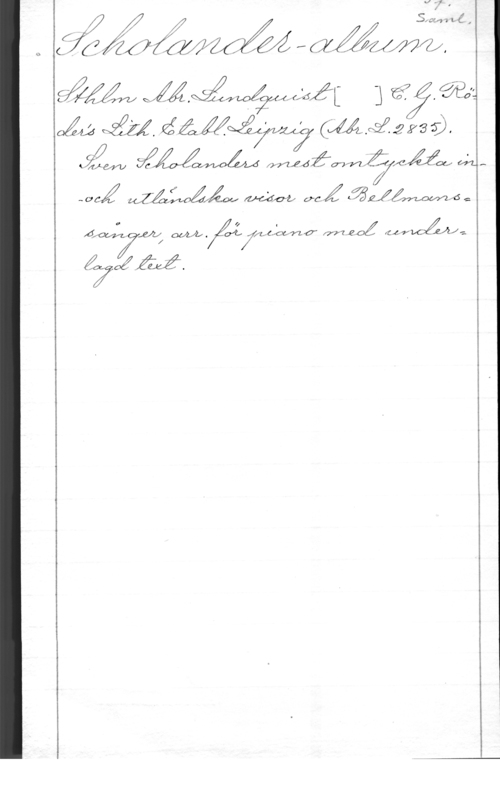 Saml.
Scholander-album.
Sthlm Abr. Lundquist [ ] C. G. Rö=
ders Lith. Etabl. Leipzig (Abr. L. 2835).
Sven Scholanders mest omtyckta in-
-och utländska visor och Bellmans=
sånger, arr. för piano med under=
lagd text.